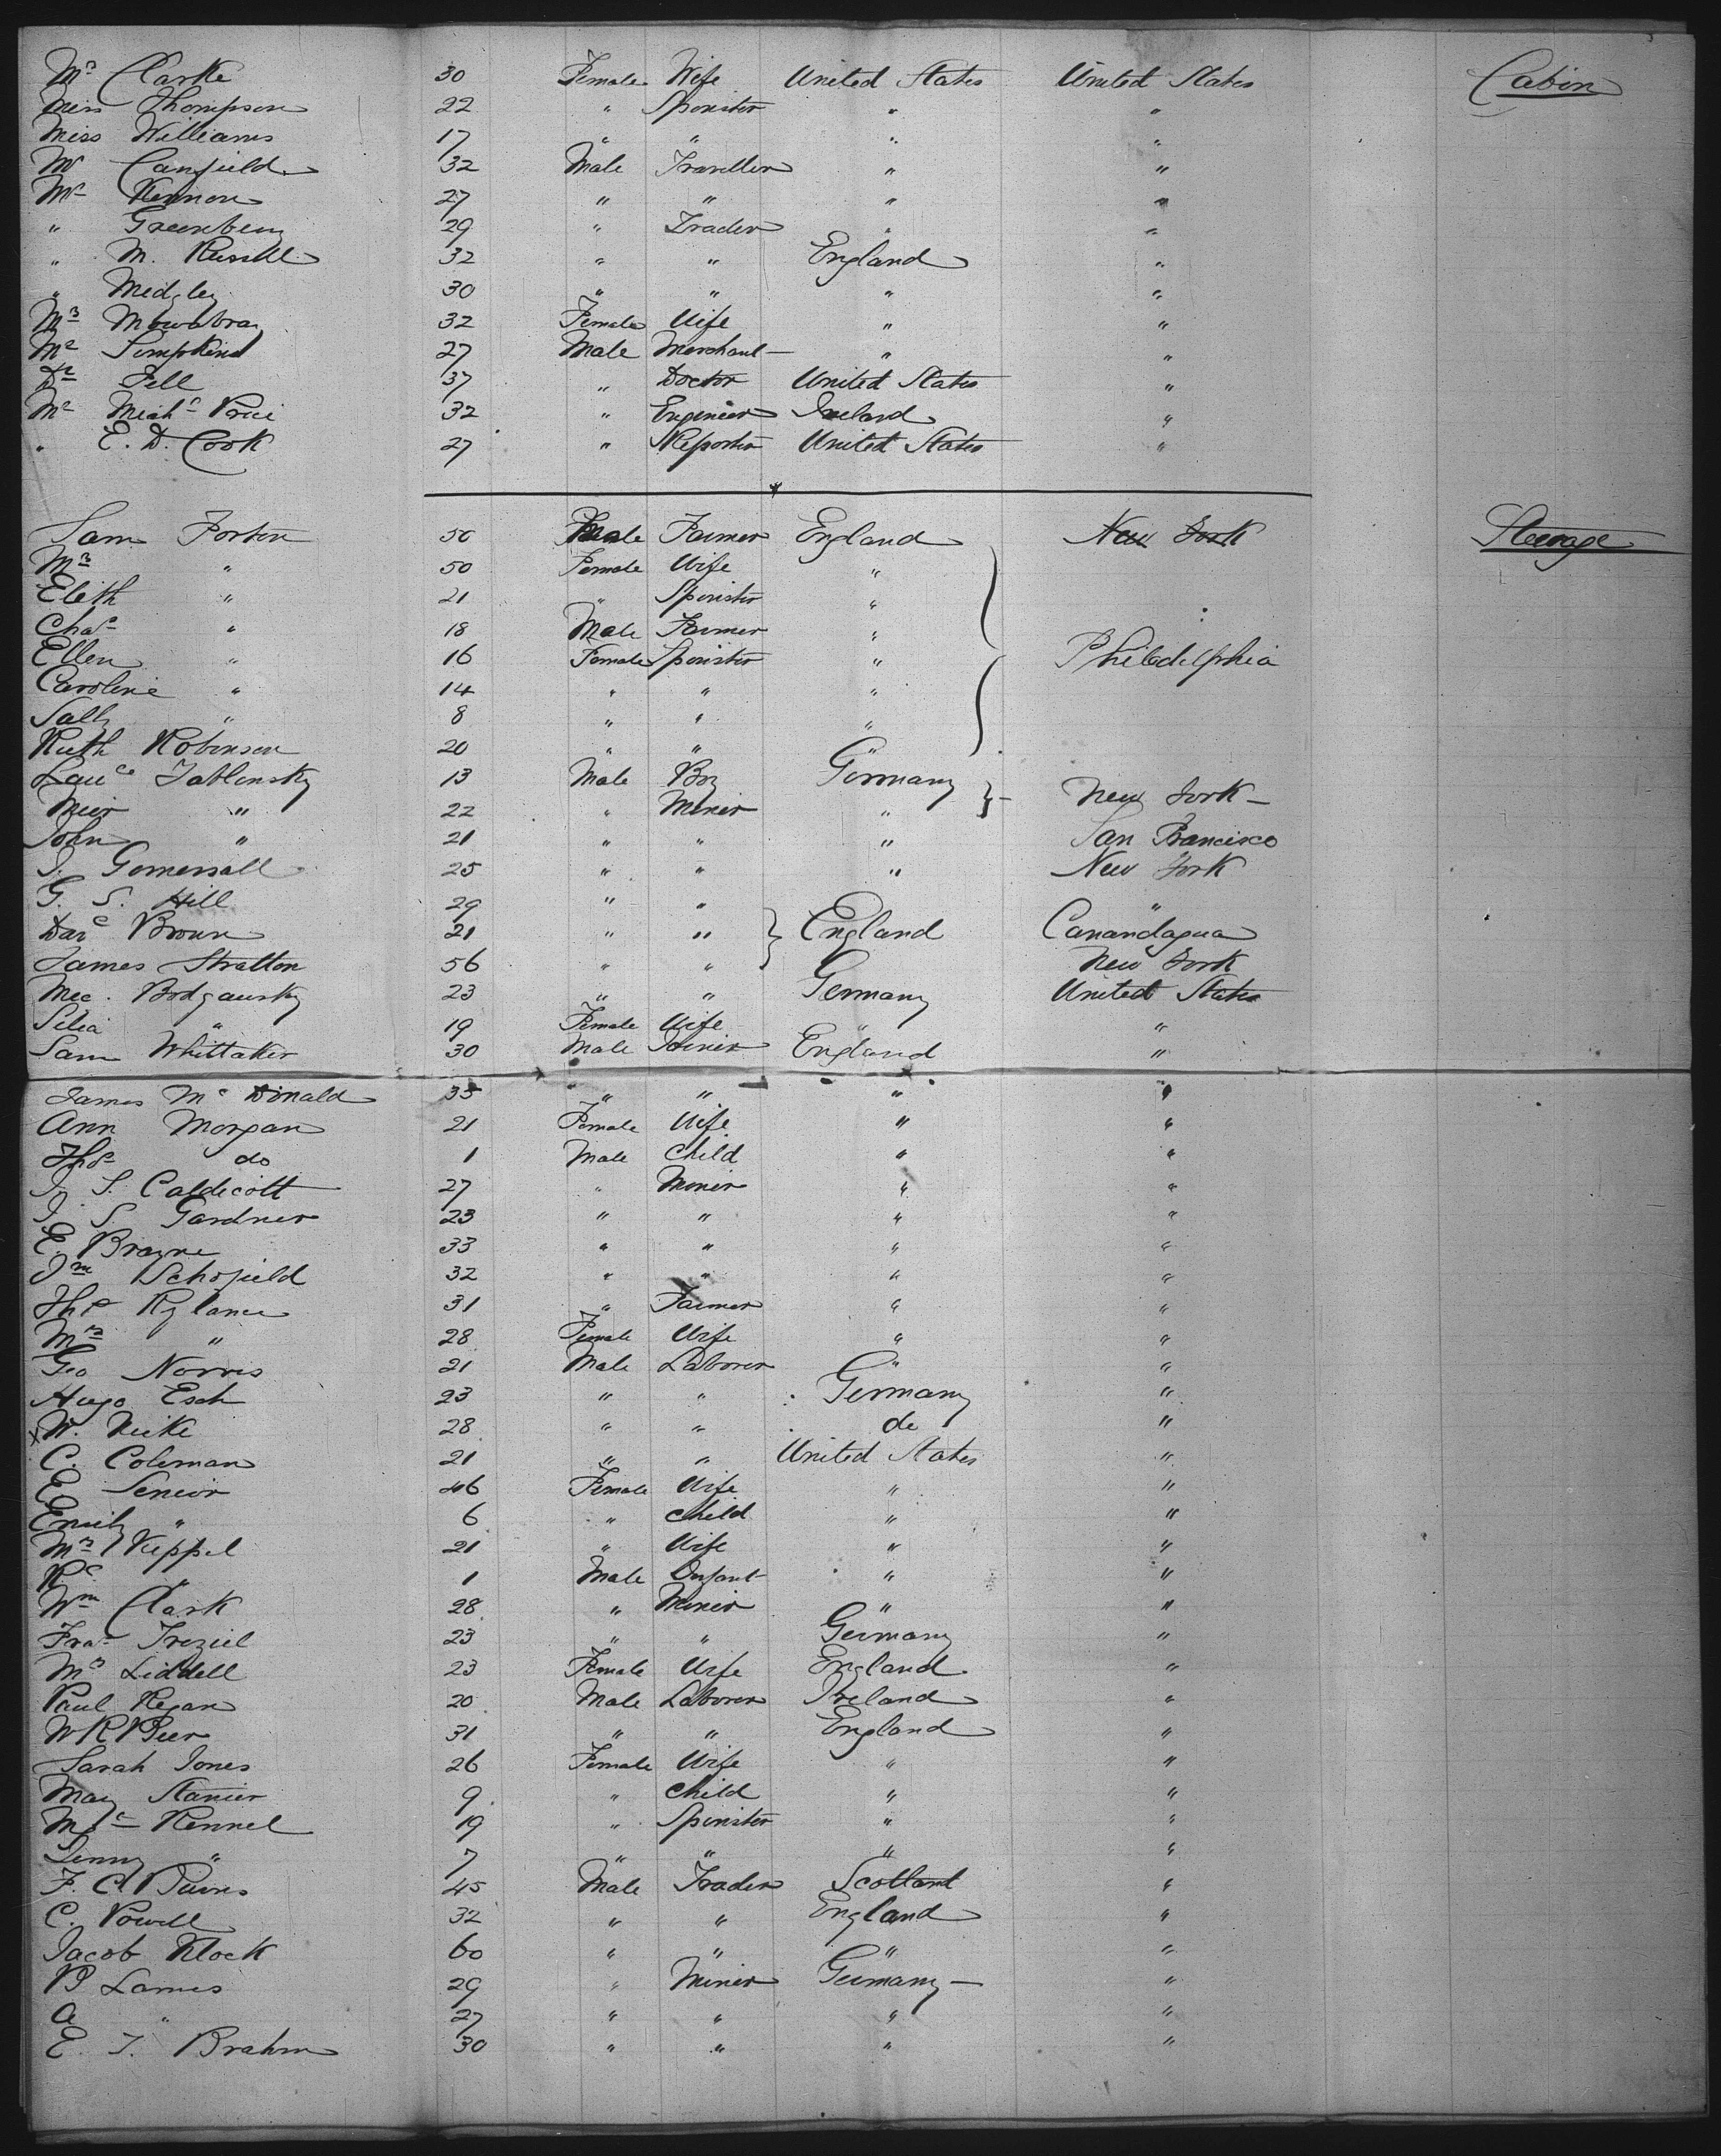 Mrs Clarke 30 Female Wife United States United States Cabin
Miss Thompson 22 " Spinster " "
Miss Williams 17 " " " "
Mr Canfield 32 Male Traveller " "
Mr Kennon 27 " " " "
" Greenberg 29 " Trader " "
" M. Russell 32 " " England "
" Medgley 30 " " " "
Mrs Mowbray 32 Female Wife " "
Mr Simpkins 27 Male Merchant " "
Dr Fell 37 " Doctor United States "
Mr Michl Price 32 " Engineer Ireland "
" E. D. Cook 27 " Reporter United States "
Sam Forton 50 Male Farmer England New York Steerage
Mrs " 50 Female Wife "
Elith " 21 " Spinster "
Chas " 18 Male Farmer "
Ellen " 16 Female Spinster " Philadelphia
Caroline " 14 " " "
Sally " 8 " " "
Ruth Robinson 20 " " "
Lauce Jablensky 13 Male Boy Germany New York
Meir " 22 " Miner "
John " 21 " " " San Francisco
J. Gomersall 25 " " " New York
G. S. Hill 29 " " "
Dad Brown 21 " " England Canandagua
James Stratton 56 " " New York
Mee. Bodgausky 23 " " Germany United States
Silia " 19 Female Wife " "
Sam Whittaker 30 Male Joiner England "
James McDonald 35 " " " "
Ann Morgan 21 Female Wife " "
Thos do 1 Male Child " "
J. S. Caldicott 27 " Miner " "
J. S. Gardner 23 " " " "
E. Brayne 33 " " " "
Jm Schofield 32 " " " "
Thos Rylance 31 " Farmer " "
Mrs " 28 Female Wife " "
Geo Norris 21 Male Laborer " "
Hugo Esch 23 " " Germany "
W. Neike 28 " " do "
C. Coleman 21 " " United States "
E Senior 46 Female Wife " "
Emily " 6 " Child " "
Mrs Keppel 21 " Wife " "
Rd " 1 Male Infant " "
Wm Clark 28 " Miner " "
Fras Treziel 23 " " Germany "
Mrs Liddell 23 Female Wife England "
Paul Regan 20 Male Laborer Ireland "
W R Peer 31 " " England "
Sarah Jones 26 Female Wife " "
Mary Stanier 9 " Child " "
Kennel 19 " Spinster " "
Jenny " 7 " " " "
F. C. Purves 45 Male Trader Scotland "
C. Powell 32 " " England "
Jacob Klock 60 " " " "
B Lames 29 " Miner Germany "
A " 27 " " " "
E. T. Brahm 30 " " " "